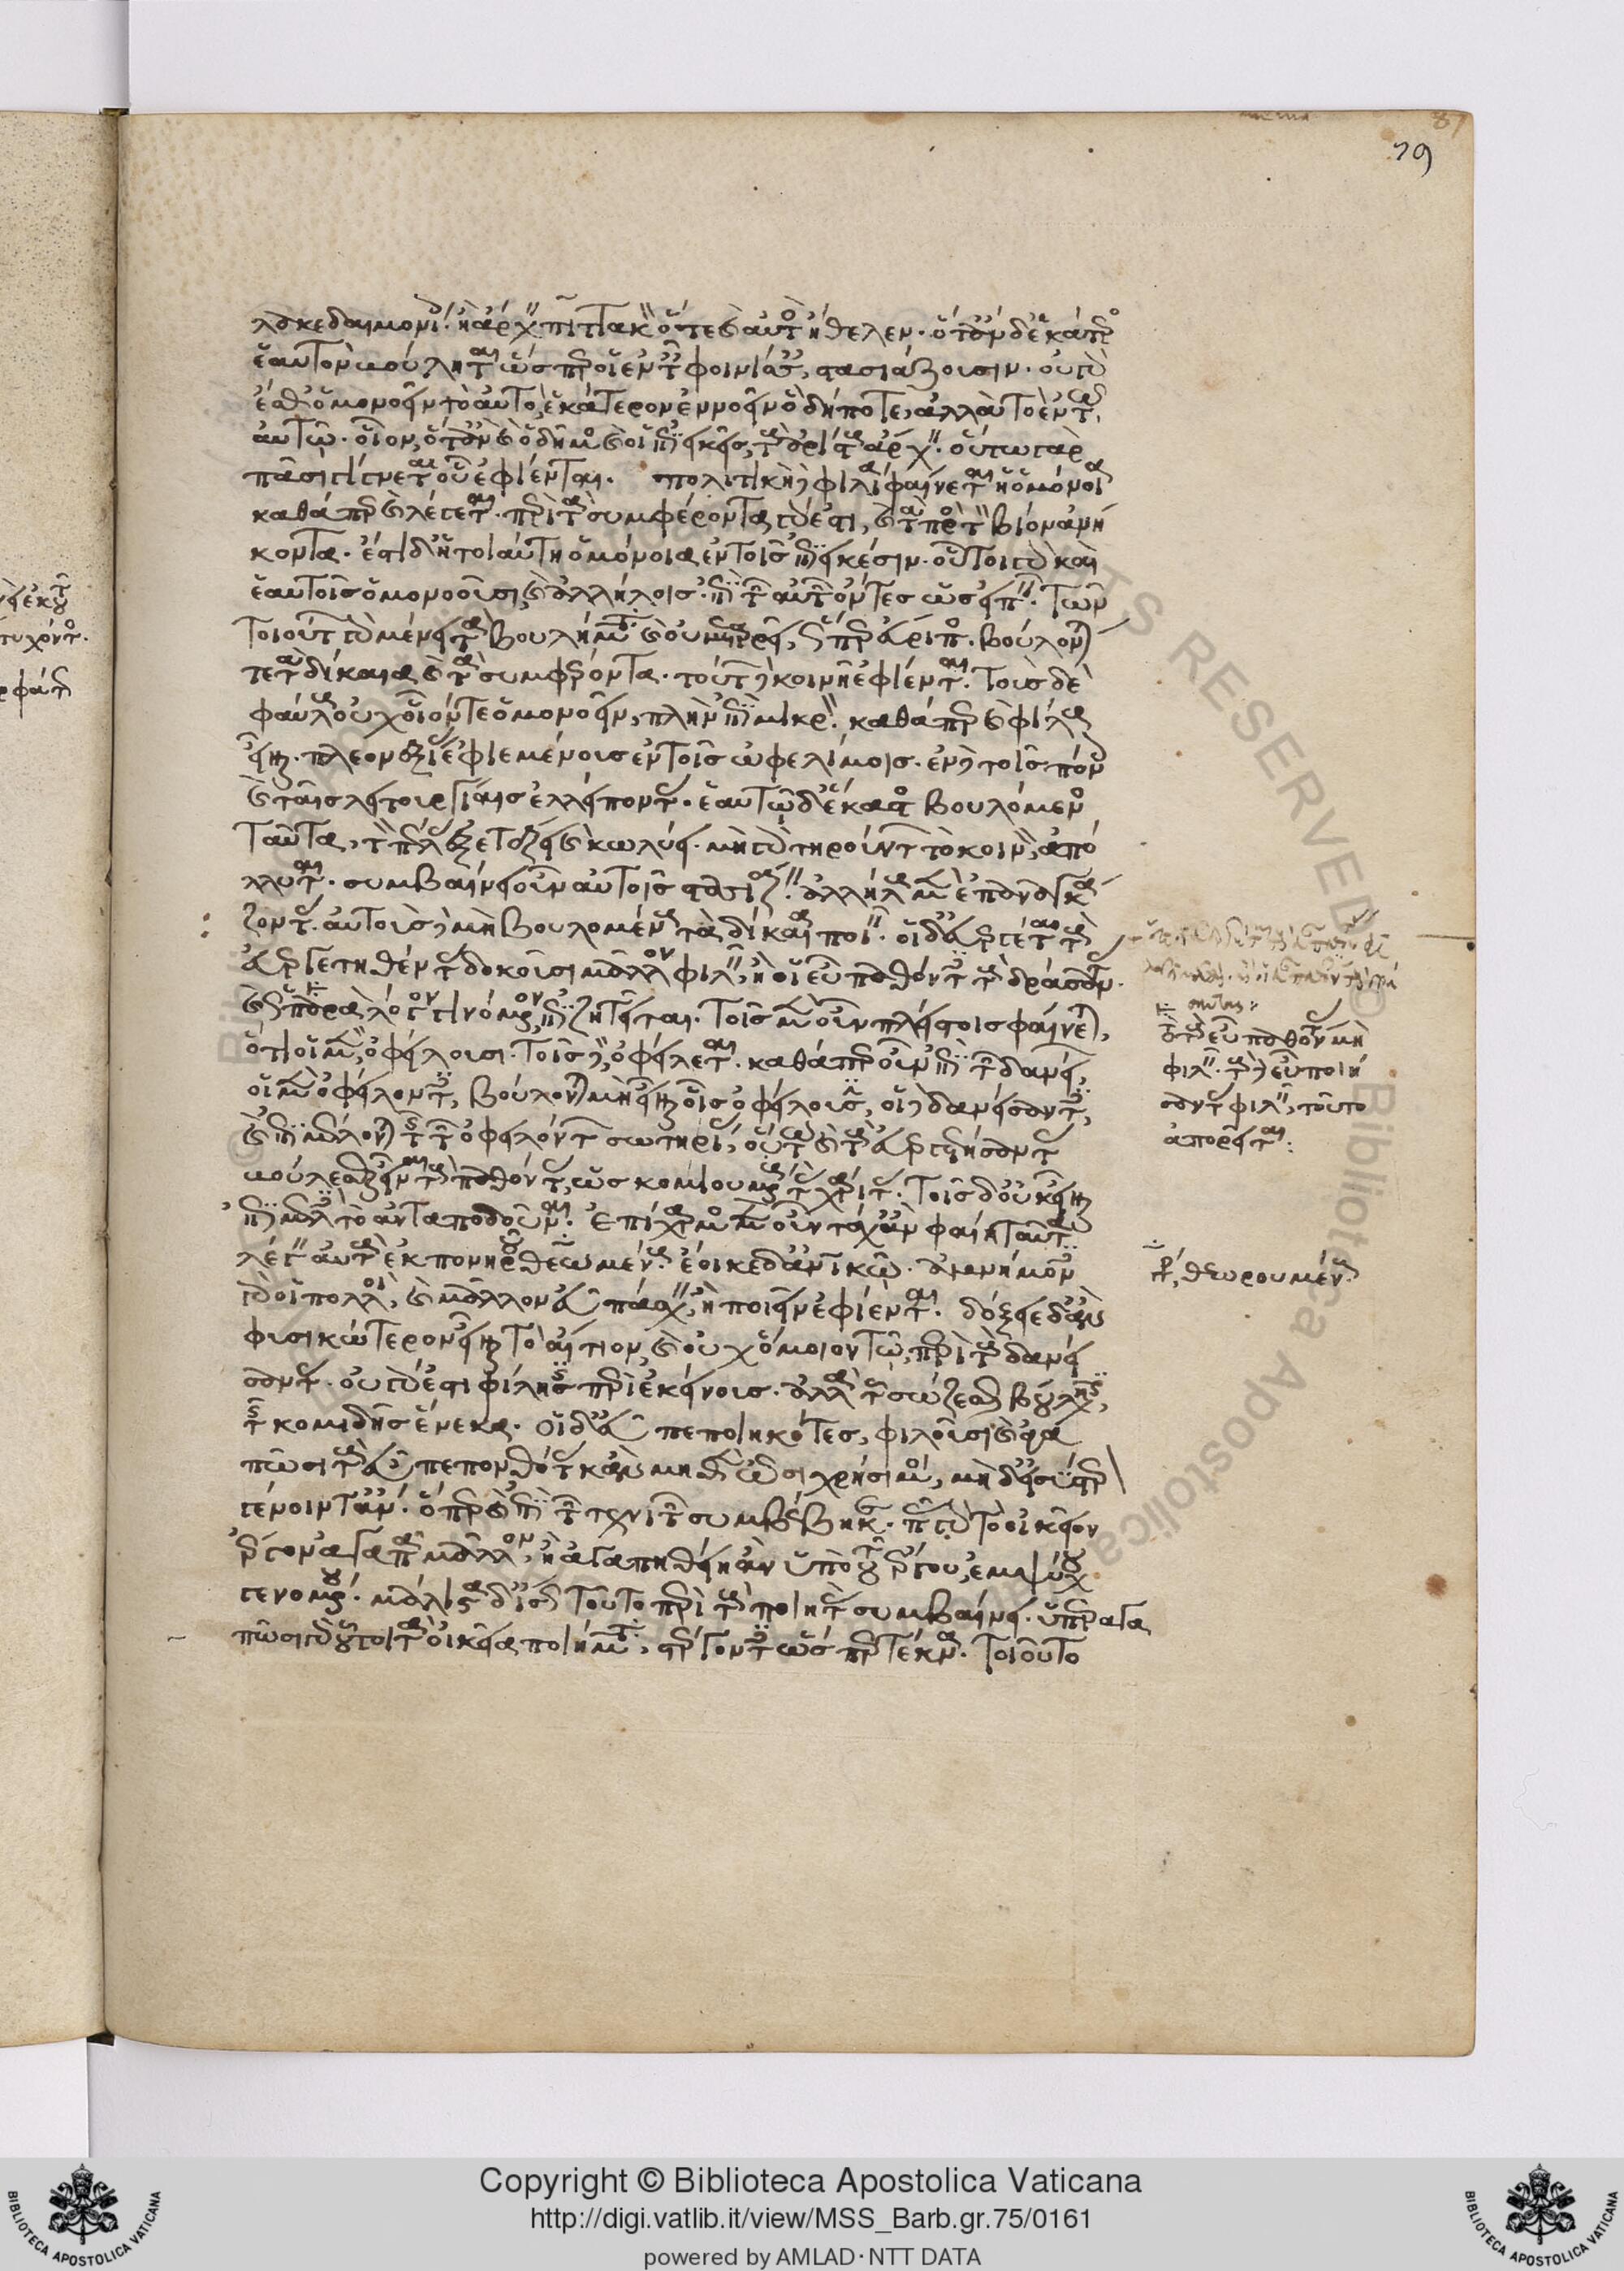 λακεδαιμονί. ἢ ἄρχ πιττακ ὅτε καὶ αὐτ ἤθελεν. ὅταν δ' ἑκάτερο
ἑαυτὸν βούληται ὥσπερ οἱ ἐν τ φοινίσς, στασιάζουσιν. οὐ γὰρ
ἐσθ' ὁμονοεῖν τὸ αὐτὸ ἑκάτερον ἐννοεῖν ὁδήποτε, ἀλλὰ τὸ ἐν τῶ
αὐτῶ. οἷον, ὅταν καὶ ὁ δῆμο καὶ οἱ ἐπιεικεῖς, τοὺς ἀρίστους ἄρχ. οὕτω γὰρ
πᾶσι γίνεται οὗ ἐφίενται. πολιτικὴ δὲ φιλία φαίνεται ἡ ὁμόνοια
καθάπερ καὶ λέγεται. περὶ τὰ συμφέροντα γάρ ἐστι, καὶ τὰ πρὸς τ βίον ἀνή
κοντα. ἔστι δ' ἡ τοιαύτη ὁμόνοια ἐν τοῖς ἐπιεικέσιν. οὗτοι γὰρ καὶ
ἑαυτοῖς ὁμονοοῦσι, καὶ ἀλλήλοις. ἐπὶ τῶν αὐτῶν ὄντες ὡς εἰπ. τῶν
τοιούτων γὰρ μένει τὰ βουλήματα καὶ οὐ μεταρρεῖ, ὥσπερ εὔριπος. βούλονται
τε τὰ δίκαια καὶ τὰ συμφέροντα. τούτων δὲ κοινῆ ἐφίενται. τοὺς δὲ
φαύλους οὐχ οἷόν τε ὁμονοεῖν, πλὴν ἐπὶ μικρ. καθάπερ καὶ φίλους
εἶναι. πλεονεξίας ἐφιεμένους ἐν τοῖς ὠφελίμοις. ἐν δὲ τοῖς πόνοις
καὶ ταῖς λειτουργίαις ἐλλείποντας. ἑαυτῶ δ' ἕκαστος βουλόμενος
ταῦτα, τὸν πέλας ἐξετάζει καὶ κωλύει. μὴ γὰρ τηρούντων τὸ κοινὸν, ἀπό
λλυται. συμβαίνει οὖν αὐτοῖς στασιάζ. ἀλλήλους μὲν ἐπαναγκά
ζοντας. αὐτοὺς δὲ μὴ βουλομένους τὰ δίκαια ποι. οἱ δ' εὐεργέται τοὺς
εὐεργετηθέντας δοκοῦσι μᾶλλον φιλ, ἢ οἱ εὖ παθόντες τοὺς δράσαντας.
καὶ ὡς παρὰ λόγον γινόμενον, ἐπιζητεῖται. τοῖς μὲν οὖν πλείστοις φαίνεται,
ὅτι οἱ μὲν, ὀφείλουσι. τοῖς δὲ, ὀφείλεται. καθάπερ οὖν ἐπὶ τῶν δανεί,
οἱ μὲν ὀφείλοντες, βούλονται μὴ εἶναι οἷς ὀφείλουσιν, οἱ δὲ δανείσαντες,
καὶ ἐπιμέλονται τῆς τῶν ὀφειλόντων σωτηρίας, οὕτω καὶ τοὺς εὐεργετήσαντας
βούλεσθαι εἶναι τοὺς παθόντας, ὡς κομιουμένους τὰς χάριτας. τοῖς δ' οὐκ εἶναι
ἐπιμελὲς τὸ ἀνταποδοῦναι. ἐπίχαρμος μὲν οὖν τάχ' ἂν φαίη ταῦτα
λέγ αὐτοὺς ἐκ πονηροῦ θεωμένους. ἔοικε δ' ἀνθρωπικῶ. ἀμνήμονες
γὰρ οἱ πολλοὶ, καὶ μᾶλλον εὖ πάσχ, ἢ ποιεῖν ἐφίενται. δόξειε δ' ἂν
φυσικώτερον εἶναι τὸ αἴτιον, καὶ οὐχ ὅμοιον τῶ περὶ τοὺς δανεί
σαντας. οὐ γάρ ἐστι φίλησις περὶ ἐκείνους. ἀλλὰ τοῦ σώζεσθαι βούλησις,
τῆς κομιδῆς ἕνεκα. οἱ δ' εὖ πεποιηκότες, φιλοῦσι καὶ ἀγα
πῶσι τοὺς εὖ πεπονθότας κἂν μηθὲν ὦσι χρήσιμοι, μὴ δ' εἰς ὕστερ
γένοιντ' ἄν. ὅπερ καὶ ἐπὶ τῶν τεχνιτῶν συμβέβηκε. πᾶς γὰρ τὸ οἰκεῖον
ἔργον ἀγαπᾶ μᾶλλον, ἢ ἀγαπηθείη ἂν ὑπὸ τοῦ ἔργου, ἐμψύχου
γενομένου. μάλιστα δ' ἴσως τοῦτο περὶ τοὺς ποιητὰς συμβαίνει. ὑπεραγα
πῶσι γὰρ οὗτοι τὰ οἰκεῖα ποιήματα, στέργοντες ὥσπερ τέκνα. τοιοῦτο
τοὺς εὖ παθόντας μὴ
φιλ. τοὺς δὲ εὖ ποιή
σαντας φιλ, τοῦτο
ἀπορεῖται:
γρ, θεωρουμένους
79
Copyright © Biblioteca Apostolica Vaticana
http://digi.vatlib.it/view/MSS_Barb.gr.75/0161
powered by AMLAD·NTT DATA
BIBLIOTECA APOSTOLICA VATICANA
BIBLIOTECA APOSTOLICA VATICANA